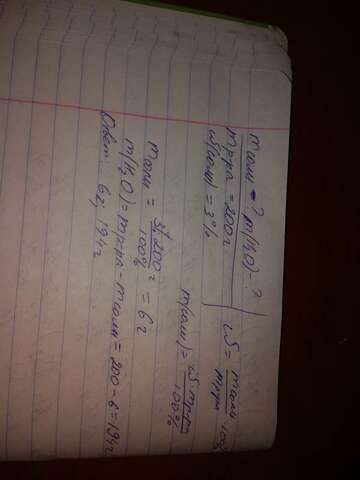 mсоли - ? m(H₂O) - ?
mр-ра = 200г
ω(соли) = 3%
ω = mсоли · 100% / mр-ра
m(соли) = ω · mр-ра / 100%
mсоли = 3% · 200г / 100% = 6г
m(H₂O) = mр-ра - mсоли = 200 - 6 = 194г
Ответ: 6г, 194г